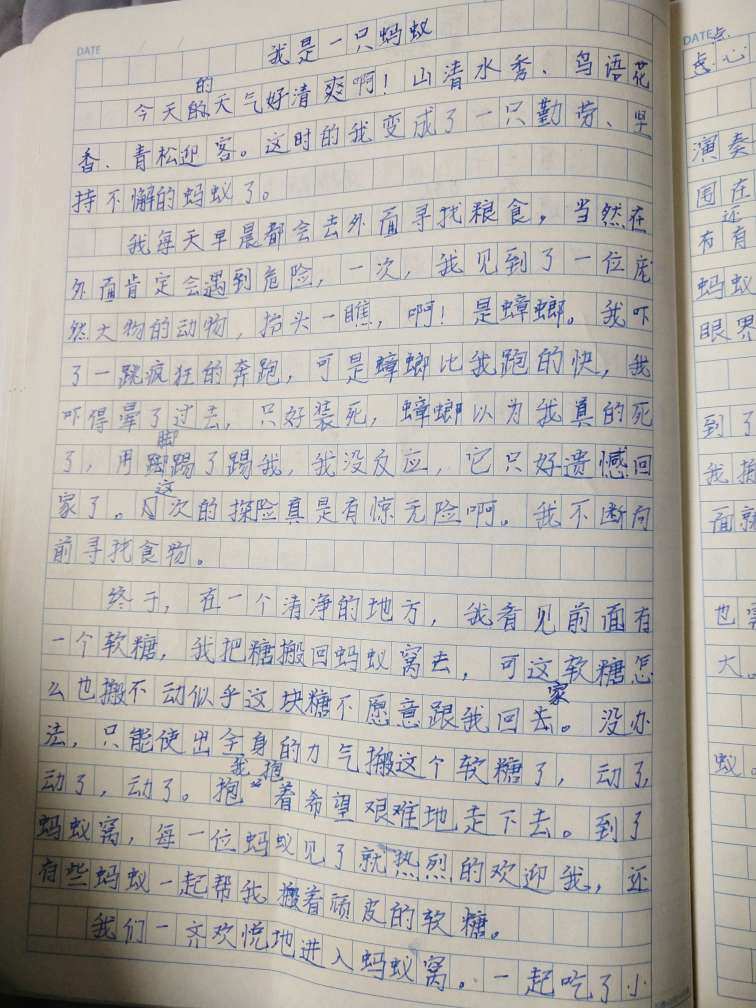 DATE
我是一只蚂蚁
的
今天的天气好清爽啊！山清水秀、鸟语花
香、青松迎客。这时的我变成了一只勤劳、坚
持不懈的蚂蚁了。
我每天早晨都会去外面寻找粮食，当然在
外面肯定会遇到危险，一次，我见到了一位庞
然大物的动物，抬头一瞧，啊！是蟑螂。我吓
了一跳疯狂的奔跑，可是蟑螂比我跑的快，我
吓得晕了过去，只好装死，蟑螂以为我真的死
脚
了，用脚踢了踢我，我没反应，它只好遗憾回
这
家了。次的探险真是有惊无险啊。我不断向
前寻找食物。
终于，在一个清净的地方，我看见前面有
一个软糖，我把糖搬回蚂蚁窝去，可这软糖怎
么也搬不动似乎这块糖不愿意跟我回去。没办
家
法，只能使出全身的力气搬这个软糖了，动了
我抱
动了，动了。抱着希望艰难地走下去。到了
蚂蚁窝，每一位蚂蚁见了就热烈的欢迎我，还
有些蚂蚁一起帮我搬着顽皮的软糖。
我们一齐欢悦地进入蚂蚁窝。一起吃了小
DATE
点
心
演奏
围在
还
有有
蚂蚁
眼界
到了
我搬
面就
也需
大。
蚁。